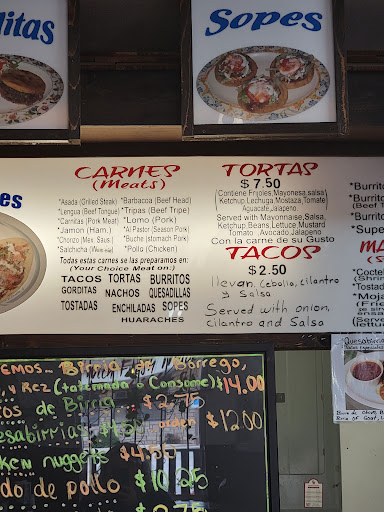 litas
Sopes
CARNES
(Meats)
*Asada (Grilled Steak)
*Lengua (Beef Tongue)
*Carnitas (Pork Meat)
*Jamon (Ham.)
*Chorizo (Mex. Saus.)
*Salchicha (Weinnie)
*Barbacoa (Beef Head)
*Tripas (Beef Tripe)
*Lomo (Pork)
*Al Pastor (Season Pork)
*Buche (stomach Pork)
*Pollo (Chicken)
Todas estas carnes se las preparamos en:
(Your Choice Meat on:)
TACOS TORTAS BURRITOS
GORDITAS NACHOS QUESADILLAS
TOSTADAS ENCHILADAS SOPES
HUARACHES
TORTAS
$ 7.50
(Contiene Frijoles,Mayonesa,salsa
Ketchup,Lechuga,Mostaza,Tomate)
Aguacate,Jalapeno.
Served with Mayonnaise,Salsa,
Ketchup Beans,Lettuce,Mustard
Tomato ,Avocado,Jalapeno
Con la carne de su Gusto
TACOS
$ 2.50
llevan, Cebolla, cilantro
y Salsa
Served with onion,
cilantro and Salsa
es
*Burrit
*Burrito
(Beef T
*Burrito
*Supe
MA
(S
*Cocte
(Shri
*Tostad
*Moja
(Frie
Serve
lett
EMOS Birria Borrego,
y Rez (tatemada o Consome) $14.00
os de Birria $2.75
esabirrias $4.50 orden $12.00
ken nuggets $4.55
do de pollo $10.25
$2.75
Quesabirria